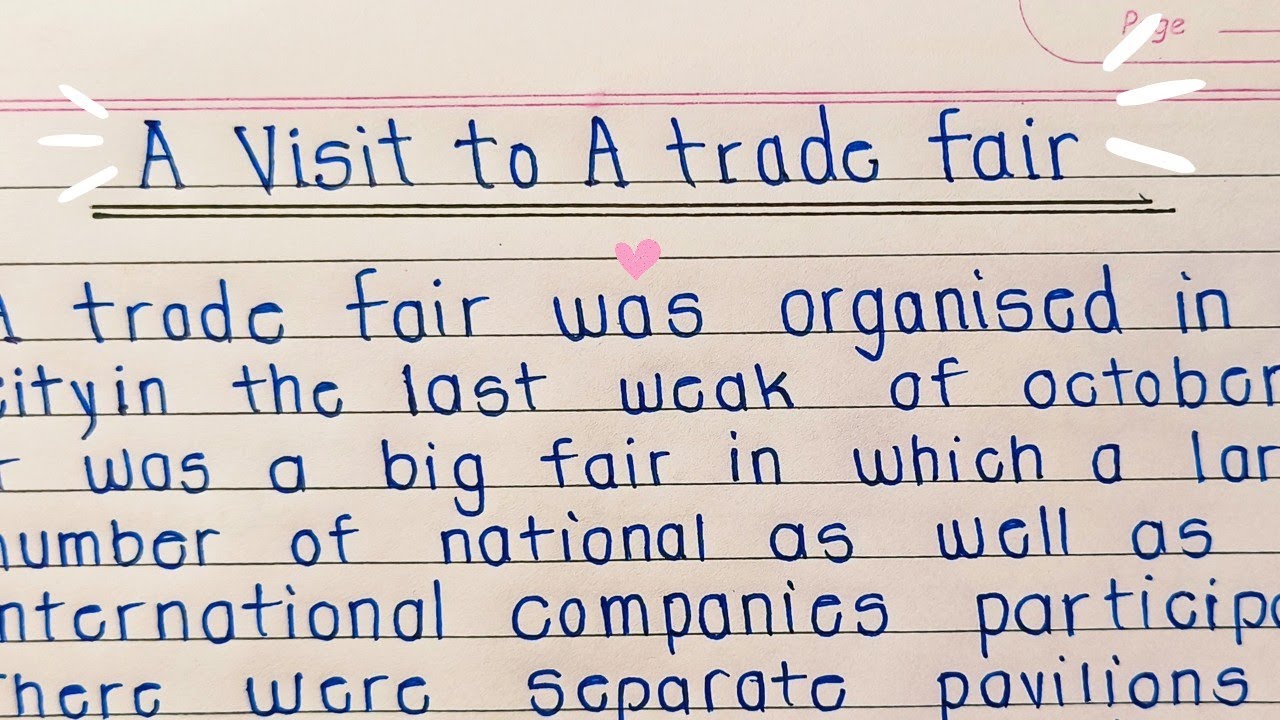 Page
A Visit to A trade fair
A trade fair was organised in
cityin the last weak of october
was a big fair in which a lar
number of national as well as
nternational companies participa
here were separate pavilions